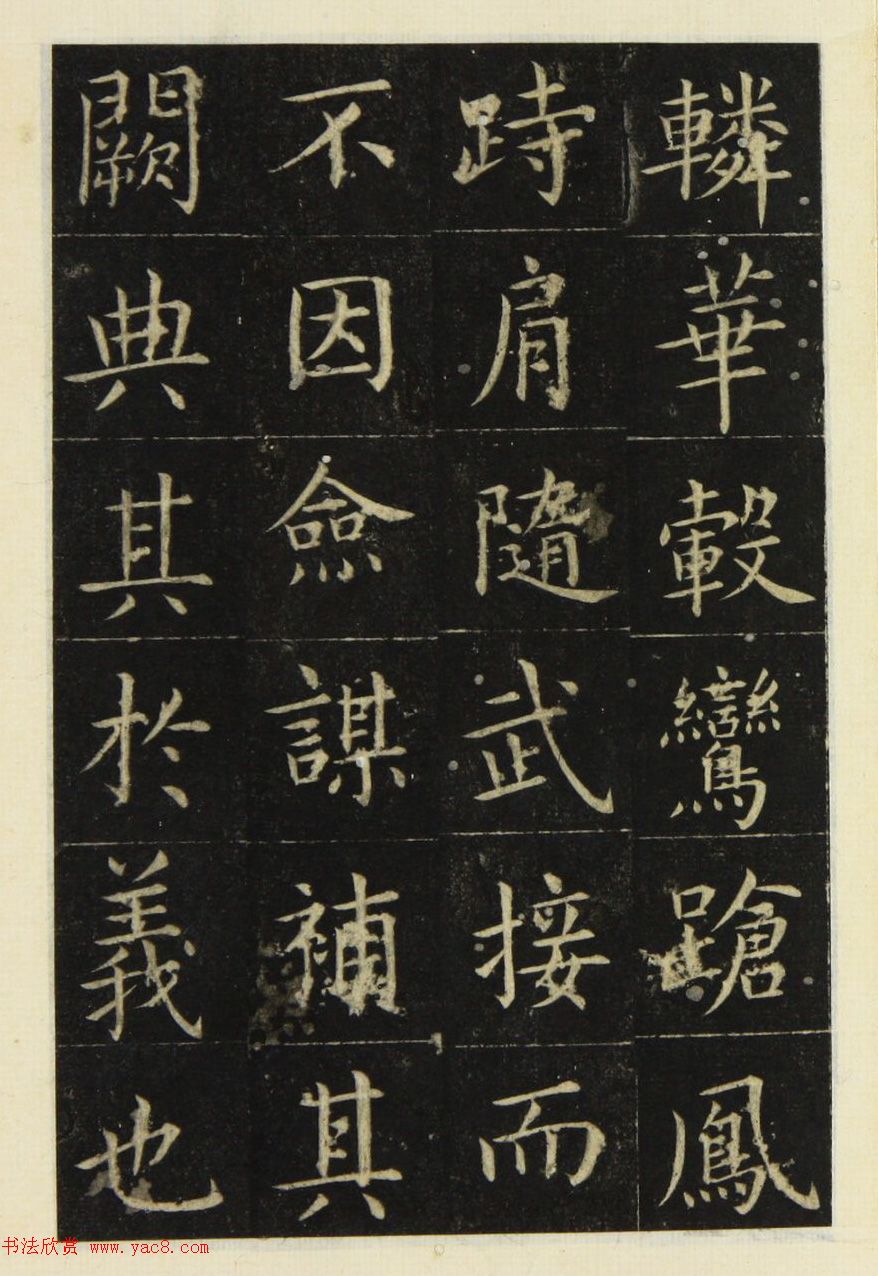 轔華轂鸞蹌鳳
跱肩隨武接而
不因僉謀補其
闕典其於義也
书法欣赏 www.yac8.com